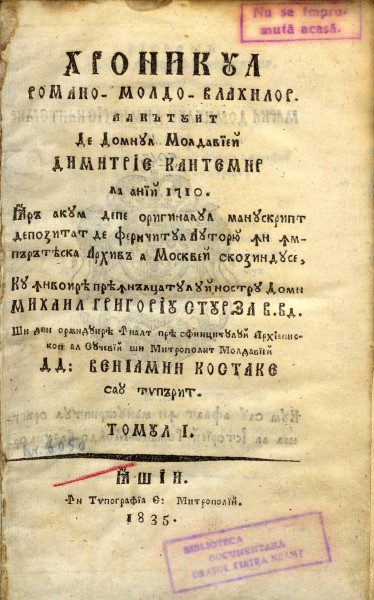 Nu se împru-
mută acasă.
ХРОНИКУЛ
РОМАНО- МОЛДО- ВЛАХИЛОР.
АЛКЪТУИТ
Де Домнул Молдавїей
ДИМИТРІЕ КАНТЕМИР
ла анїй 1710.
Ꙗръ акум депе оригиналул манускрипт
депозитат де феричитул Ауторю ꙟн ꙟм-
пърътѣска Архивъ а Москвей скозиндусе,
Ку ꙟнвоирѣ прѣꙟнълцатулуй ностру Домн
МИХАИЛ ГРИГОРІУ СТУРЗА В.ВД.
Ши дин орѫндуирѣ ꙟналт прѣ сфинцитулуй Архїепис-
коп ал Сучевїй ши Митрополит Молдавїей
ДД: ВЕНІАМИН КОСТАКЕ
сау типърит.
ТОМУЛ I.
ꙖШІЙ.
Ꙟн Типографїа С: Митрополїй.
1835.
BIBLIOTECA
DOCUMENTARA
ORAȘUL PIATRA NEAMȚ